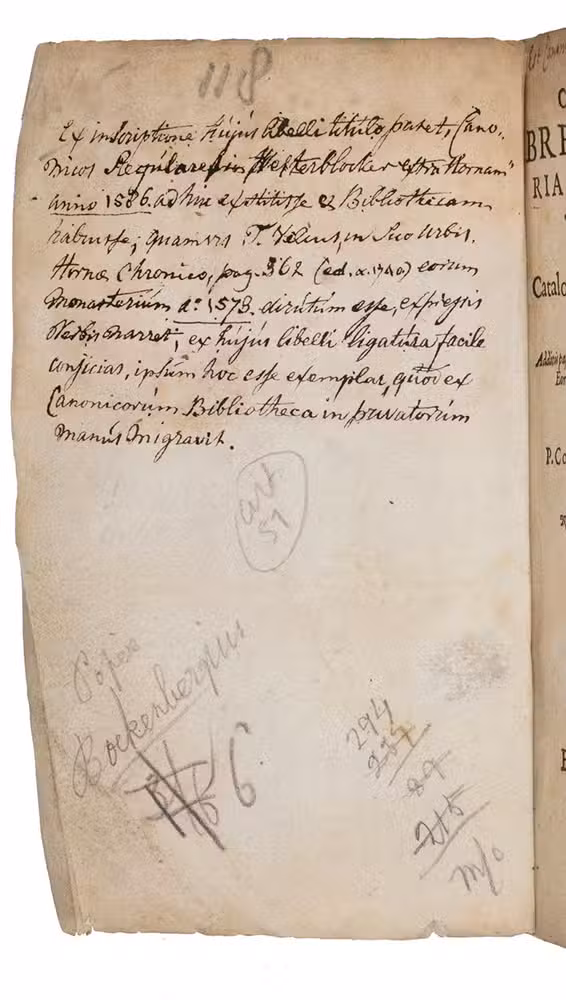 118
Ex inscriptione hújús libelli titúlo patet, Cano„
nicos Regúlares in Westerblocker extra Hornam
anno 1586. ad húc exstitisse & Bibliothecam
habuisse; quamvis T. Velius, in súo urbis.
Hornæ Chronico, pag. 362 (ed. a. 1740) eorum
Monasteriúm aº. 1573. dirútúm esse, expressis
Verbis narret; ex hújús libelli ligatúra facile
conjicias, ipsúm hoc esse exemplar, quod ex
Canonicorúm Bibliotheca in privatorúm
manús migravit.
art
51
Bockenbergius
6
294
89
215
m/o
Est
C
BRE
RIA
Catalo
P. Co